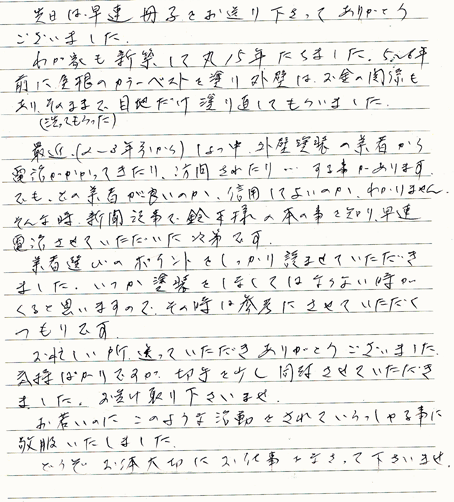 先日は、早速 冊子をお送り下さって ありがとう
ございました。
わが家も新築して丸15年たちました。5〜6年
前に屋根のカラーベストを塗り外壁は、お金の関係も
あり、そのままで目地だけ塗り直してもらいました。
(塗ってもらった)
最近(2〜3年前から)しょっ中、外壁塗装の業者から
電話がかかってきたり、訪問されたり…する事があります。
でも、どの業者が良いのか、信用してよいのか、わかりません。
そんな時、新聞記事で鈴木様の本の事を知り、早速
電話させていただいた次第です。
業者選びのポイントをしっかり読ませていただき
ました。いつか塗装をしなくてはならない時が
くると思いますので、その時は参考にさせていただく
つもりです。
お忙しい所、送っていただきありがとうございました。
気持ばかりですが、切手を少し同封させていただき
ました。お受け取り下さいませ。
お若いのにこのような活動をされていらっしゃる事に
敬服いたしました。
どうぞ お体大切に お仕事なさって下さいませ。